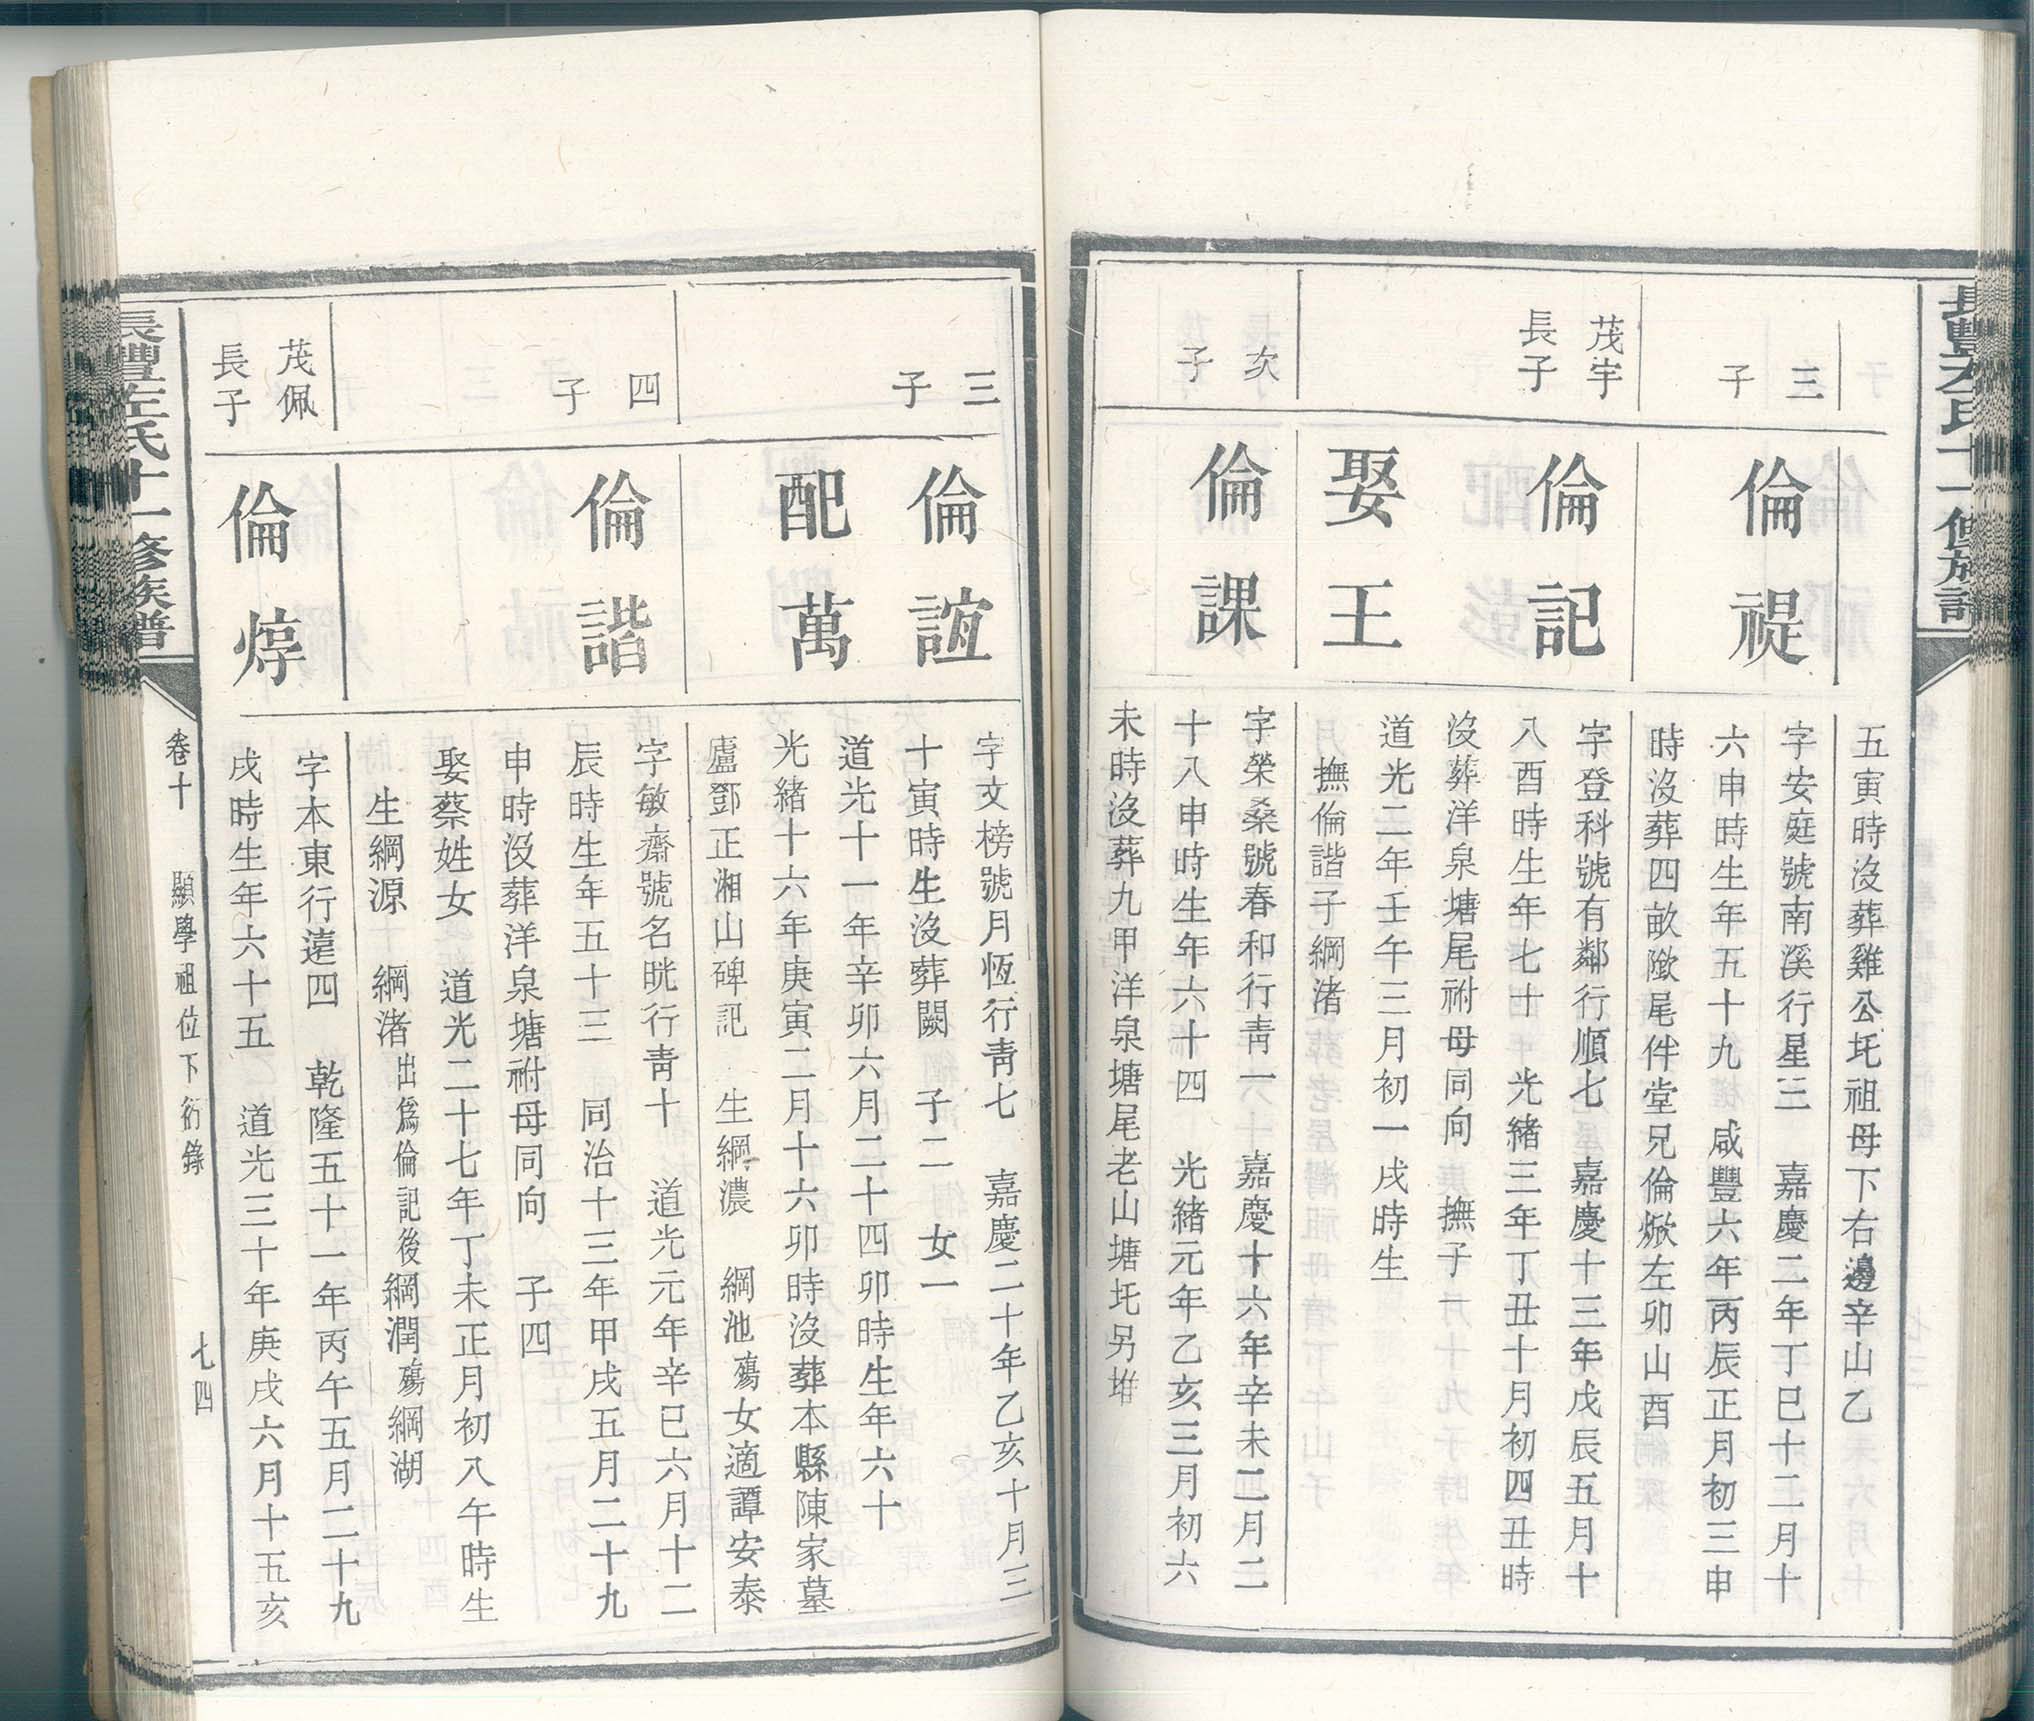 長豐左氏十一修族譜
五寅時沒葬雞公圫祖母下右邊辛山乙
三子
倫禔
字安庭號南溪行星三　嘉慶二年丁巳十二月十
六申時生年五十九　咸豐六年丙辰正月初三申
時沒葬四畝隞尾伴堂兄倫焮左卯山酉
茂宇長子
倫記
字登科號有鄰行順七　嘉慶十三年戊辰五月十
八酉時生年七十　光緒三年丁丑十月初四丑時
沒葬洋泉塘尾祔母同向　撫子一
娶王
道光二年壬午三月初一戌時生
撫倫諧子綱渚
次子
倫課
字榮桑號春和行青一　嘉慶十六年辛未二月二
十八申時生年六十四　光緒元年乙亥三月初六
未時沒葬九甲洋泉塘尾老山塘圫另堆
三子
倫誼
字文榜號月恆行青七　嘉慶二十年乙亥十月三
十寅時生沒葬闕　子二　女一
配萬
道光十一年辛卯六月二十四卯時生年六十
光緒十六年庚寅二月十六卯時沒葬本縣陳家墓
廬鄧正湘山碑記　生綱濃　綱池殤女適譚安泰
四子
倫諧
字敏齋號名晄行青十　道光元年辛巳六月十二
辰時生年五十三　同治十三年甲戌五月二十九
申時沒葬洋泉塘祔母同向　子四
娶蔡姓女　道光二十七年丁未正月初八午時生
生綱源　綱渚出爲倫記後綱潤殤綱湖
茂佩長子
倫焞
字本東行遠四　乾隆五十一年丙午五月二十九
戌時生年六十五　道光三十年庚戌六月十五亥
長豐左氏十一修族譜
卷十　顯學祖位下衍錄　七四